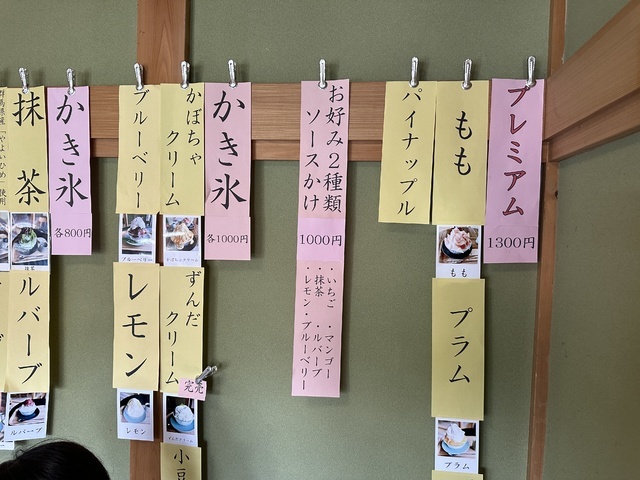 プレミアム
1300円
もも
もも
プラム
プラム
パイナップル
お好み2種類
ソースかけ
1000円
・いちご ・マンゴー
・抹茶 ・ルバーブ
・レモン・ブルーベリー
かき氷
各1000円
かぼちゃ
クリーム
ずんだ
クリーム
小豆
ブルーベリー
ブルーベリー
レモン
レモン
かき氷
各800円
抹茶
抹茶
ルバーブ
ルバーブ